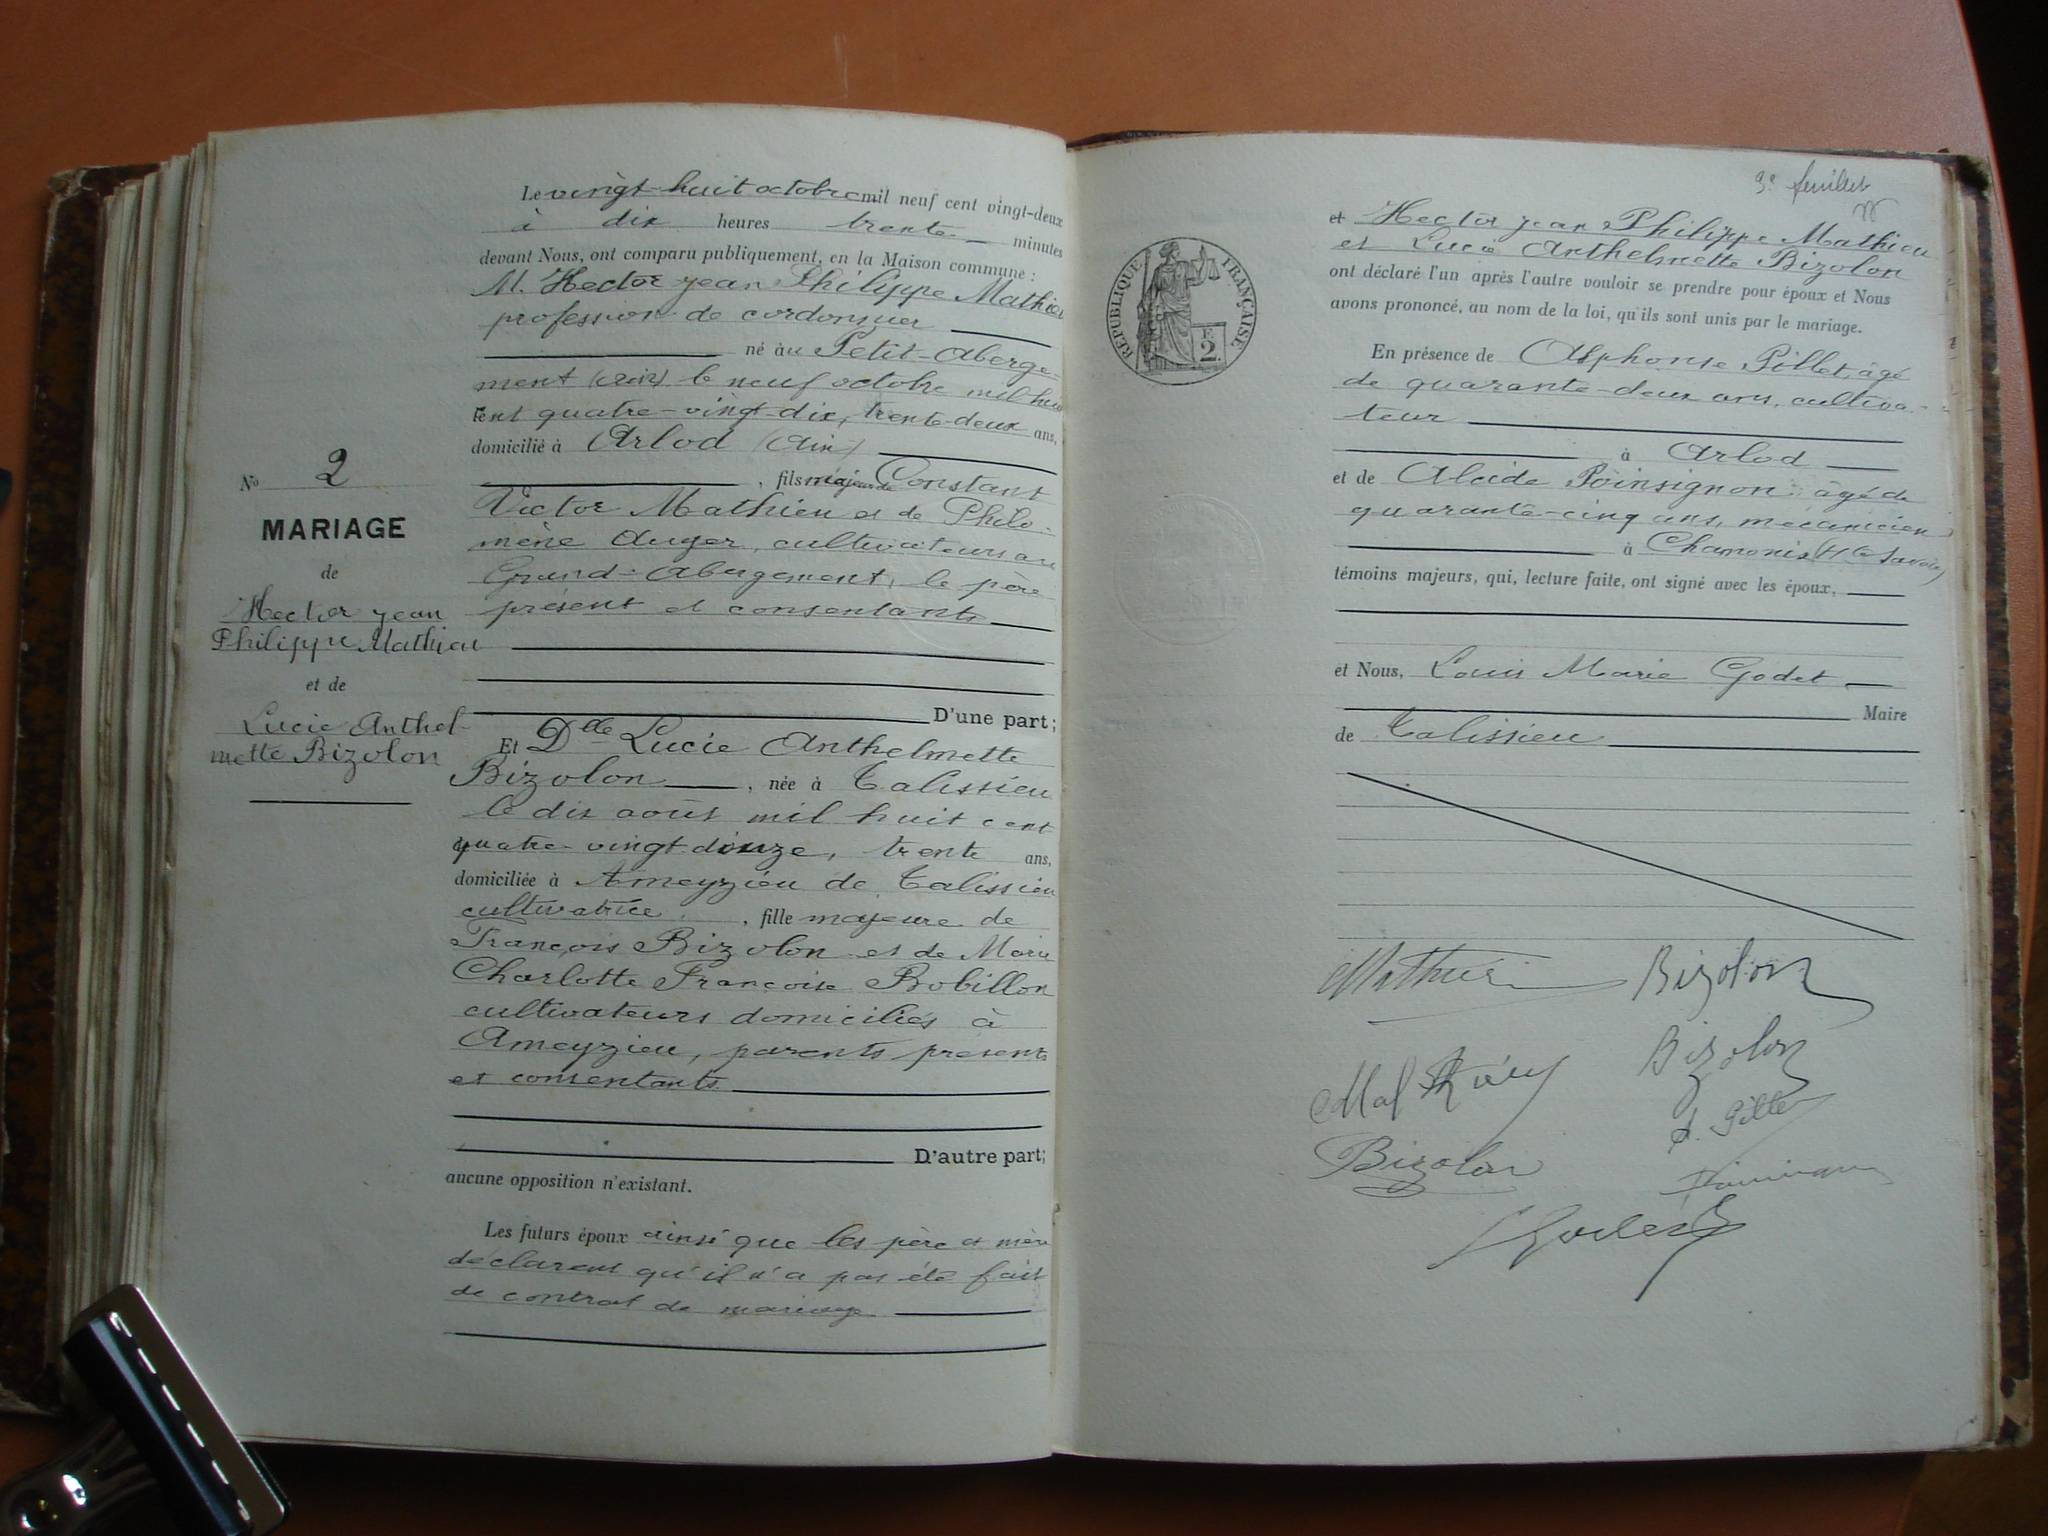 N° 2
MARIAGE
de
Hector jean
Philippe Mathieu
et de
Lucie Anthel-
mette Bizolon
Le vingt-huit octobre mil neuf cent vingt-deux
à dix heures trente minutes
devant Nous, ont comparu publiquement, en la Maison commune :
M. Hector jean Philippe Mathieu
profession de cordonnier
né au Petit-Aberge-
ment (Ain) le neuf octobre mil huit
cent quatre-vingt-dix, trente-deux ans,
domicilié à Arlod (Ain)
, fils majeur de Constant
Victor Mathieu et de Philo-
mène Auger, cultivateurs au
Grand-Abergement, le père
présent et consentants
D'une part;
Et Dlle Lucie Anthelmette
Bizolon, née à Talissieu
le dix août mil huit cent
quatre-vingt-douze, trente ans,
domiciliée à Ameyzieu de Talissieu
cultivatrice, fille majeure de
François Bizolon et de Marie
Charlotte Françoise Bobillon
cultivateurs domiciliés à
Ameyzieu, parents présents
et consentants
D'autre part;
aucune opposition n'existant.
Les futurs époux ainsi que les père et mère
déclarent qu'il n'a pas été fait
de contrat de mariage
3e feuillet
RÉPUBLIQUE FRANÇAISE
2
et Hector jean Philippe Mathieu
et Lucie Anthelmette Bizolon
ont déclaré l'un après l'autre vouloir se prendre pour époux et Nous
avons prononcé, au nom de la loi, qu'ils sont unis par le mariage.
En présence de Alphonse Pillet, âgé
de quarante-deux ans, cultiva-
teur
à Arlod
et de Alcide Poinsignon, âgé de
quarante-cinq ans, mécanicien
à Chamonix (Hte Savoie)
témoins majeurs, qui, lecture faite, ont signé avec les époux,
et Nous, Louis Marie Godet
Maire
de Talissieu
Mathieu Bizolon
Bizolon
Bizolon
Godet